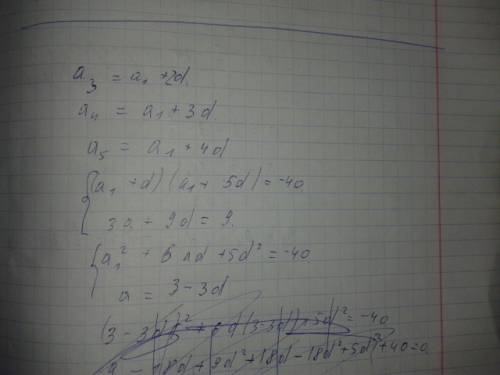 a₃ = a₁ + 2d.
a₄ = a₁ + 3d
a₅ = a₁ + 4d
{(a₁ + d)(a₁ + 5d) = -40
3a + 9d = 9.
{a₁² + 6 a d + 5d² = -40
a = 3 - 3d
(3 - 3d)² + 6d(3-3d)+5d² = -40
9 - 18d + 9d² + 18d - 18d² + 5d² + 40 = 0